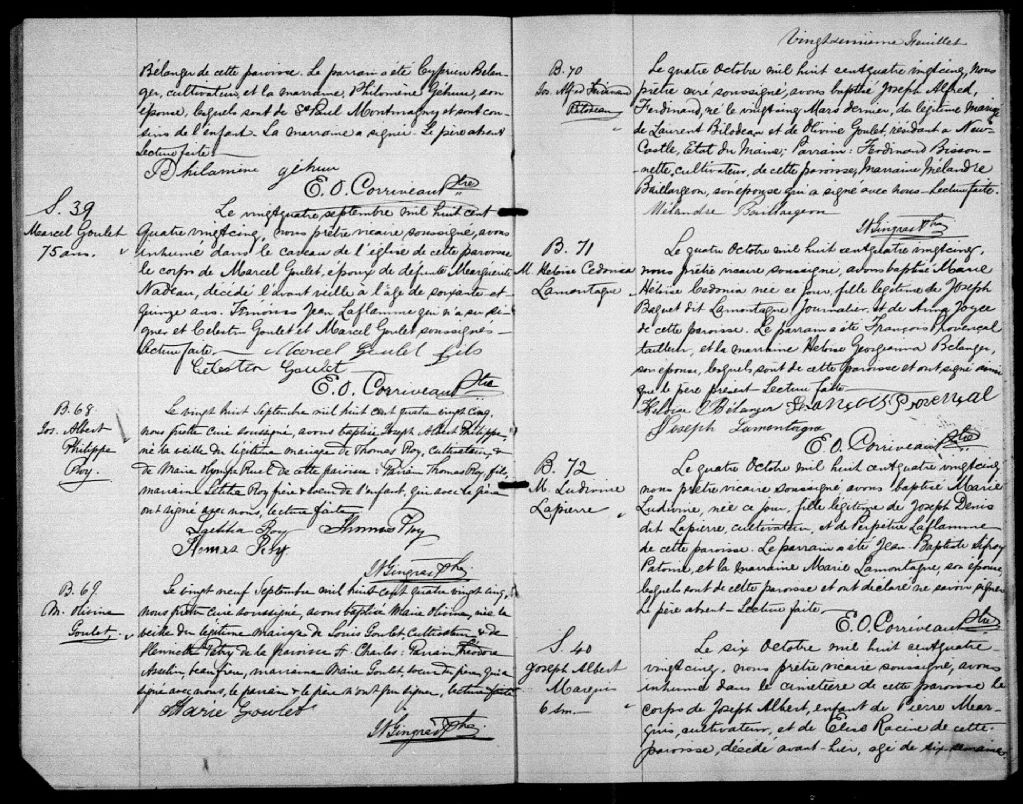 Bélanger de cette paroisse. Le parrain a été Cyprien Bélan-
ger, cultivateur, et la marraine, Philomène Géhun, son
épouse, lesquels sont de St Paul Montmagny et sont cou-
sins de l'enfant. La marraine a signé. Le père absent
Lecture faite
Philamine géhun
E. O. Corriveau Ptre
S. 39
Marcel Goulet
75 ans.
Le vingtquatre, septembre mil huit cent
quatre vingtcinq, nous prêtre vicaire, soussigné, avons
inhumé dans le caveau de l'église de cette paroisse
le corps de Marcel Goulet, époux de défunte Marguerite
Nadeau, décédé l'avant veille à l'âge de soixante et
quinze ans. Témoins Jean Laflamme qui n'a su si-
gner et Célestin Goulet et Marcel Goulet soussignés
Lecture faite
Marcel Goulet fils
Célestin Goulet
E. O. Corriveau Ptre
B. 68.
Jos. Albert
Philippe
Roy.
Le vingt huit Septembre mil huit cent quatre vingt cinq,
nous prêtre curé soussigné, avons baptisé Joseph Albert Philippe,
né la veille du légitime mariage de Thomas Roy, cultivateur, &
de Marie Olympe Ruel de cette paroisse: Parrain Thomas Roy, fils,
marraine Letitia Roy frère & soeur de l'enfant, qui avec le père
ont signé avec nous, lecture faite
Laetitia Roy Thomas Roy
Thomas Roy
N Gingras Ptre
B. 69.
M. Olivine
Goulet.
Le vingt neuf Septembre mil huit cent quatre vingt cinq,
nous prêtre curé soussigné, avons baptisé Marie Olivine, née la
veille du légitime mariage de Louis Goulet, cultivateur & de
Henriette Patry de la paroisse St. Charles: Parrain Théodore
Asselin, beau frère, marraine Marie Goulet, soeur du père, qui a
signé avec nous, le parrain & le père n'ont pu signer, lecture faite
Marie Goulet
N Gingras Ptre
Vingtdeuxième Feuillet
B. 70
Jos. Alfred Ferdinand
Bilodeau
Le quatre Octobre mil huit cent quatre vingtcinq, Nous
prêtre curé soussigné, avons baptisé Joseph Alfred,
Ferdinand, né le vingtcinq Mars dernier, du légitime mariage
de Laurent Bilodeau et de Olivine Goulet, résidant à New
Castle, Etat du Maine; Parrain: Ferdinand Bisson-
nette, cultivateur, de cette paroisse, Marraine Mélandre
Baillargeon, son épouse qui a signé avec nous. Lecture faite.
Mélandre Baillargeon
N Gingras Ptre
B. 71
M. Héloise Cedonia
Lamontagne
Le quatre Octobre mil huit cent quatre vingtcinq,
nous prêtre vicaire soussigné, avons baptisé Marie
Héloise Cedonia née ce jour, fille légitime de Joseph
Baquet dit Lamontagne Journalier, et de Anna Joyce
de cette paroisse. Le parrain a été François Provençal
tailleur, et la marraine Heloise Georgianna Belanger,
son épouse, lesquels sont de cette paroisse et ont signé ainsi
que le père présent Lecture faite
Heloise Bélanger François Provençal
Joseph Lamontagne
E. O. Corriveau Ptre
B. 72
M. Ludivine
Lapierre
Le quatre Octobre mil huit cent quatre vingtcinq
nous prêtre vicaire soussigné avons baptisé Marie
Ludivine, née ce jour, fille légitime de Joseph Denis
dit Lapierre, cultivateur, et de Perpétue Laflamme
de cette paroisse. Le parrain a été Jean-Baptiste
et la marraine Marie Lamontagne, son épouse
lesquels sont de cette paroisse et ont déclaré ne savoir signer
Le père absent - Lecture faite
E. O. Corriveau Ptre
S. 40
Joseph Albert
Marquis
6 sm.
Le six Octobre mil huit cent quatre-
vingtcinq, nous prêtre vicaire soussigné, avons
inhumé dans le cimetière de cette paroisse le
corps de Joseph Albert, enfant de Pierre Mar-
quis, cultivateur, et de Elise Racine de cette
paroisse, décédé avant-hier, agé de six semaines